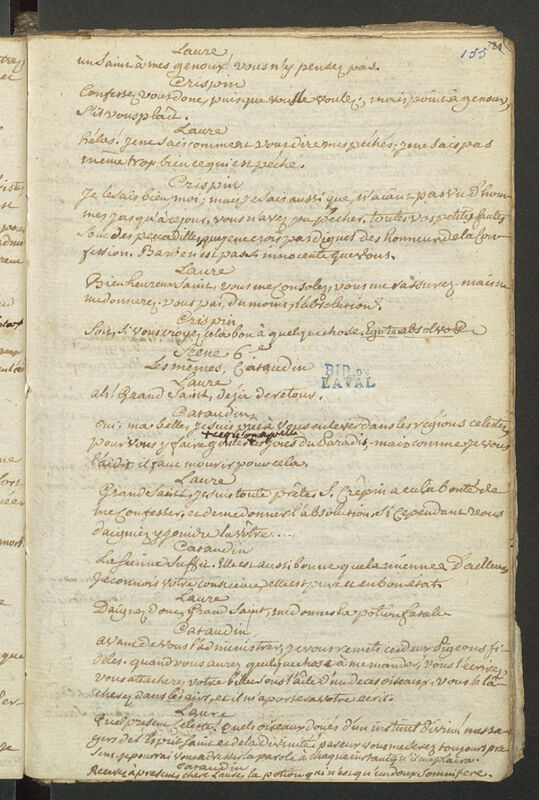 155
Laure
un Saint à mes genoux! vous n'y pensez pas.
Crispin
Confessez vous donc, puisque vous le voulez; mais point à genoux
s'il vous plait.
Laure
hélas! je ne sais comment vous dire mes péchés; je ne sais pas
même trop bien ce qui est péché.
Crispin
Je le sais bien moi; mais je sais aussi que, n'aiant pas vu d'hom-
mes jusqu'à ce jour, vous n'avez pu pécher. toutes vos petites fautes
sont des peccadilles, que je ne crois pas dignes des honneurs de la con-
fession. n'est pas si innocente que vous.
Laure
Bienheureux Saint, vous me consolez, vous me rassurez. mais ne
me donnerez-vous pas, du moins, l'absolution?
Crispin
Soit, si vous croyez cela bon à quelque chose. Ego te absolvo
Scène 6e
Les mêmes, Cataudin
Laure
ah! Grand Saint, déjà de retour.
Cataudin
Oui, ma belle, je suis prêt à vous enlever dans les régions celestes
pour vous y faire gouter les joies du Paradis. mais comme je vous
l'ai dit il faut mourir pour cela.
Laure
Grand Saint, je suis toute prête. S. Crépin a eu la bonté de
me confesser, et de me donner l'absolution. Si cependant vous
daigniez y joindre la vôtre ....
Cataudin
La sienne suffit. Elle est aussi bonne que la mienne. D'ailleurs
je connois votre conscience, elle est pure et en bon état.
Laure
Daignez donc, Grand Saint, me donner la potion fatale
Cataudin
avant de vous l'administrer, je vous remets ces deux Pigeons fi-
dèles. quand vous aurez quelque chose à me mander, vous l'écrirez,
vous attacherez votre billet sous l'aîle d'un de ces oiseaux, vous le lâ-
cherez dans les airs, et il m'apportera votre écrit.
Laure
Quel présent céleste! Quels oiseaux doués d'un instinct divin! messa-
gers de l'Esprit Saint et de la divinité! par eux vous me serez toujours pré-
sent, je pourrai vous adresser la parole à chaque instant qu'il me plaira.
Cataudin
Recevez à présent, chère Laure, la potion qui n'est qu'un doux somnifère.
BIB. DE
LAVAL